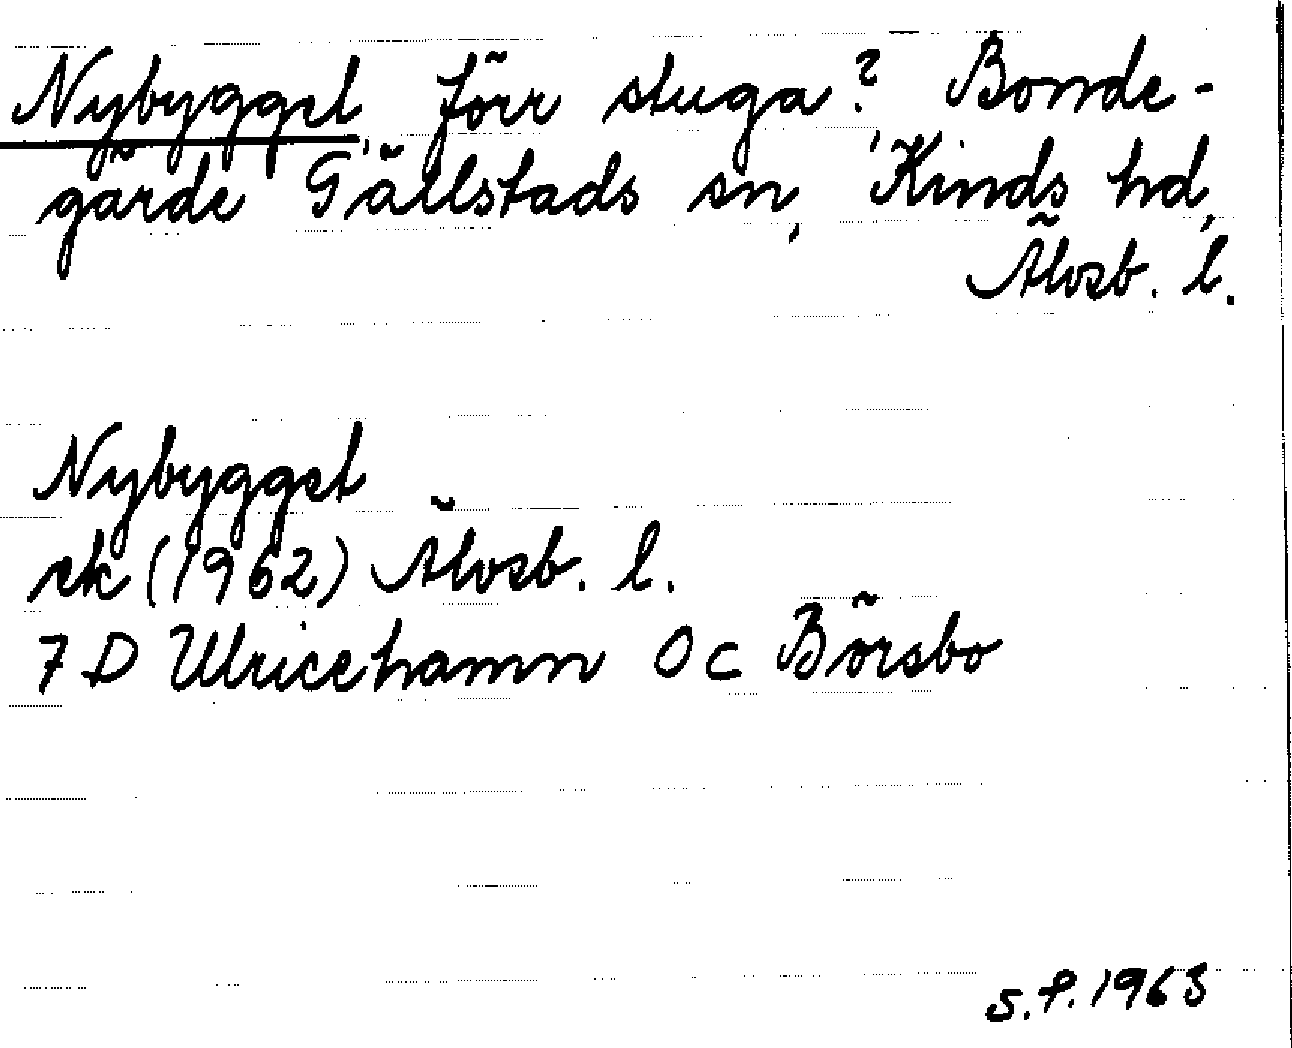 Nybygget, förr stuga? Bonde-
gärde, Gällstads sn, Kinds hd,
Älvsb. l.
Nybygget
ek (1962) Älvsb. l.
7 D Ulricehamn 0 c Börsbo
S.P. 1963